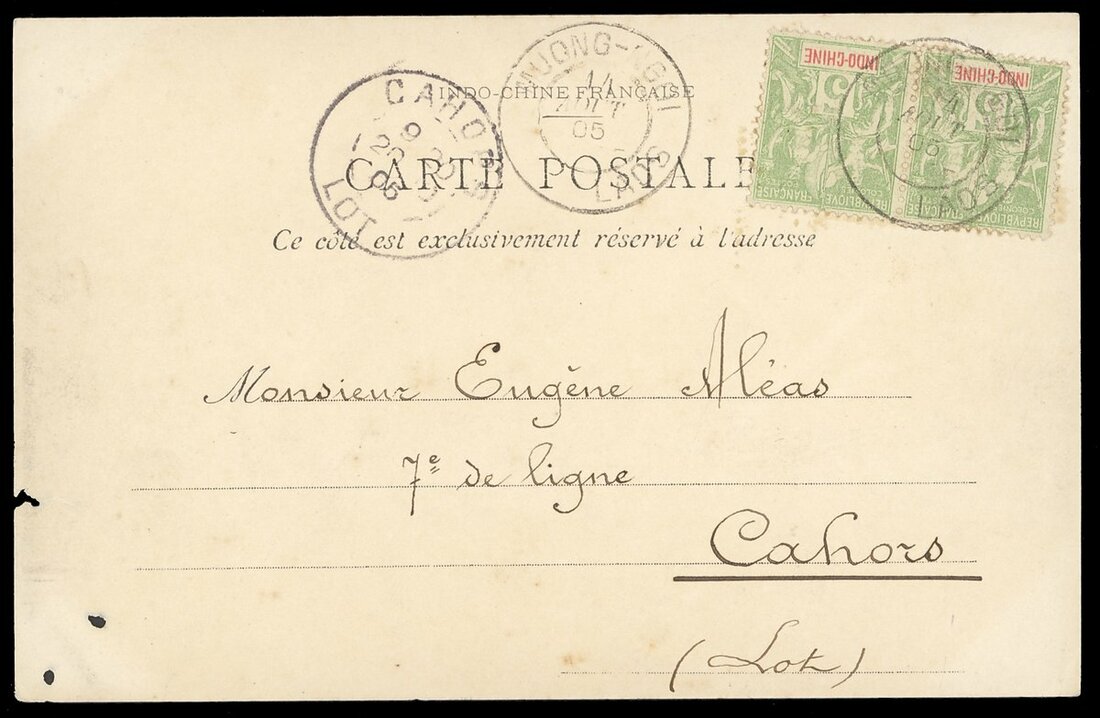 INDO-CHINE FRANÇAISE
CARTE POSTALE
Ce côté est exclusivement réservé à l'adresse
CAHORS
LOT
14
AOUT
05
LAOS
INDO-CHINE
5
RÉPUBLIQUE FRANÇAISE
INDO-CHINE
5
RÉPUBLIQUE FRANÇAISE
14
AOUT
05
LAOS
Monsieur Eugène Aléas
7e de ligne
Cahors
(Lot)